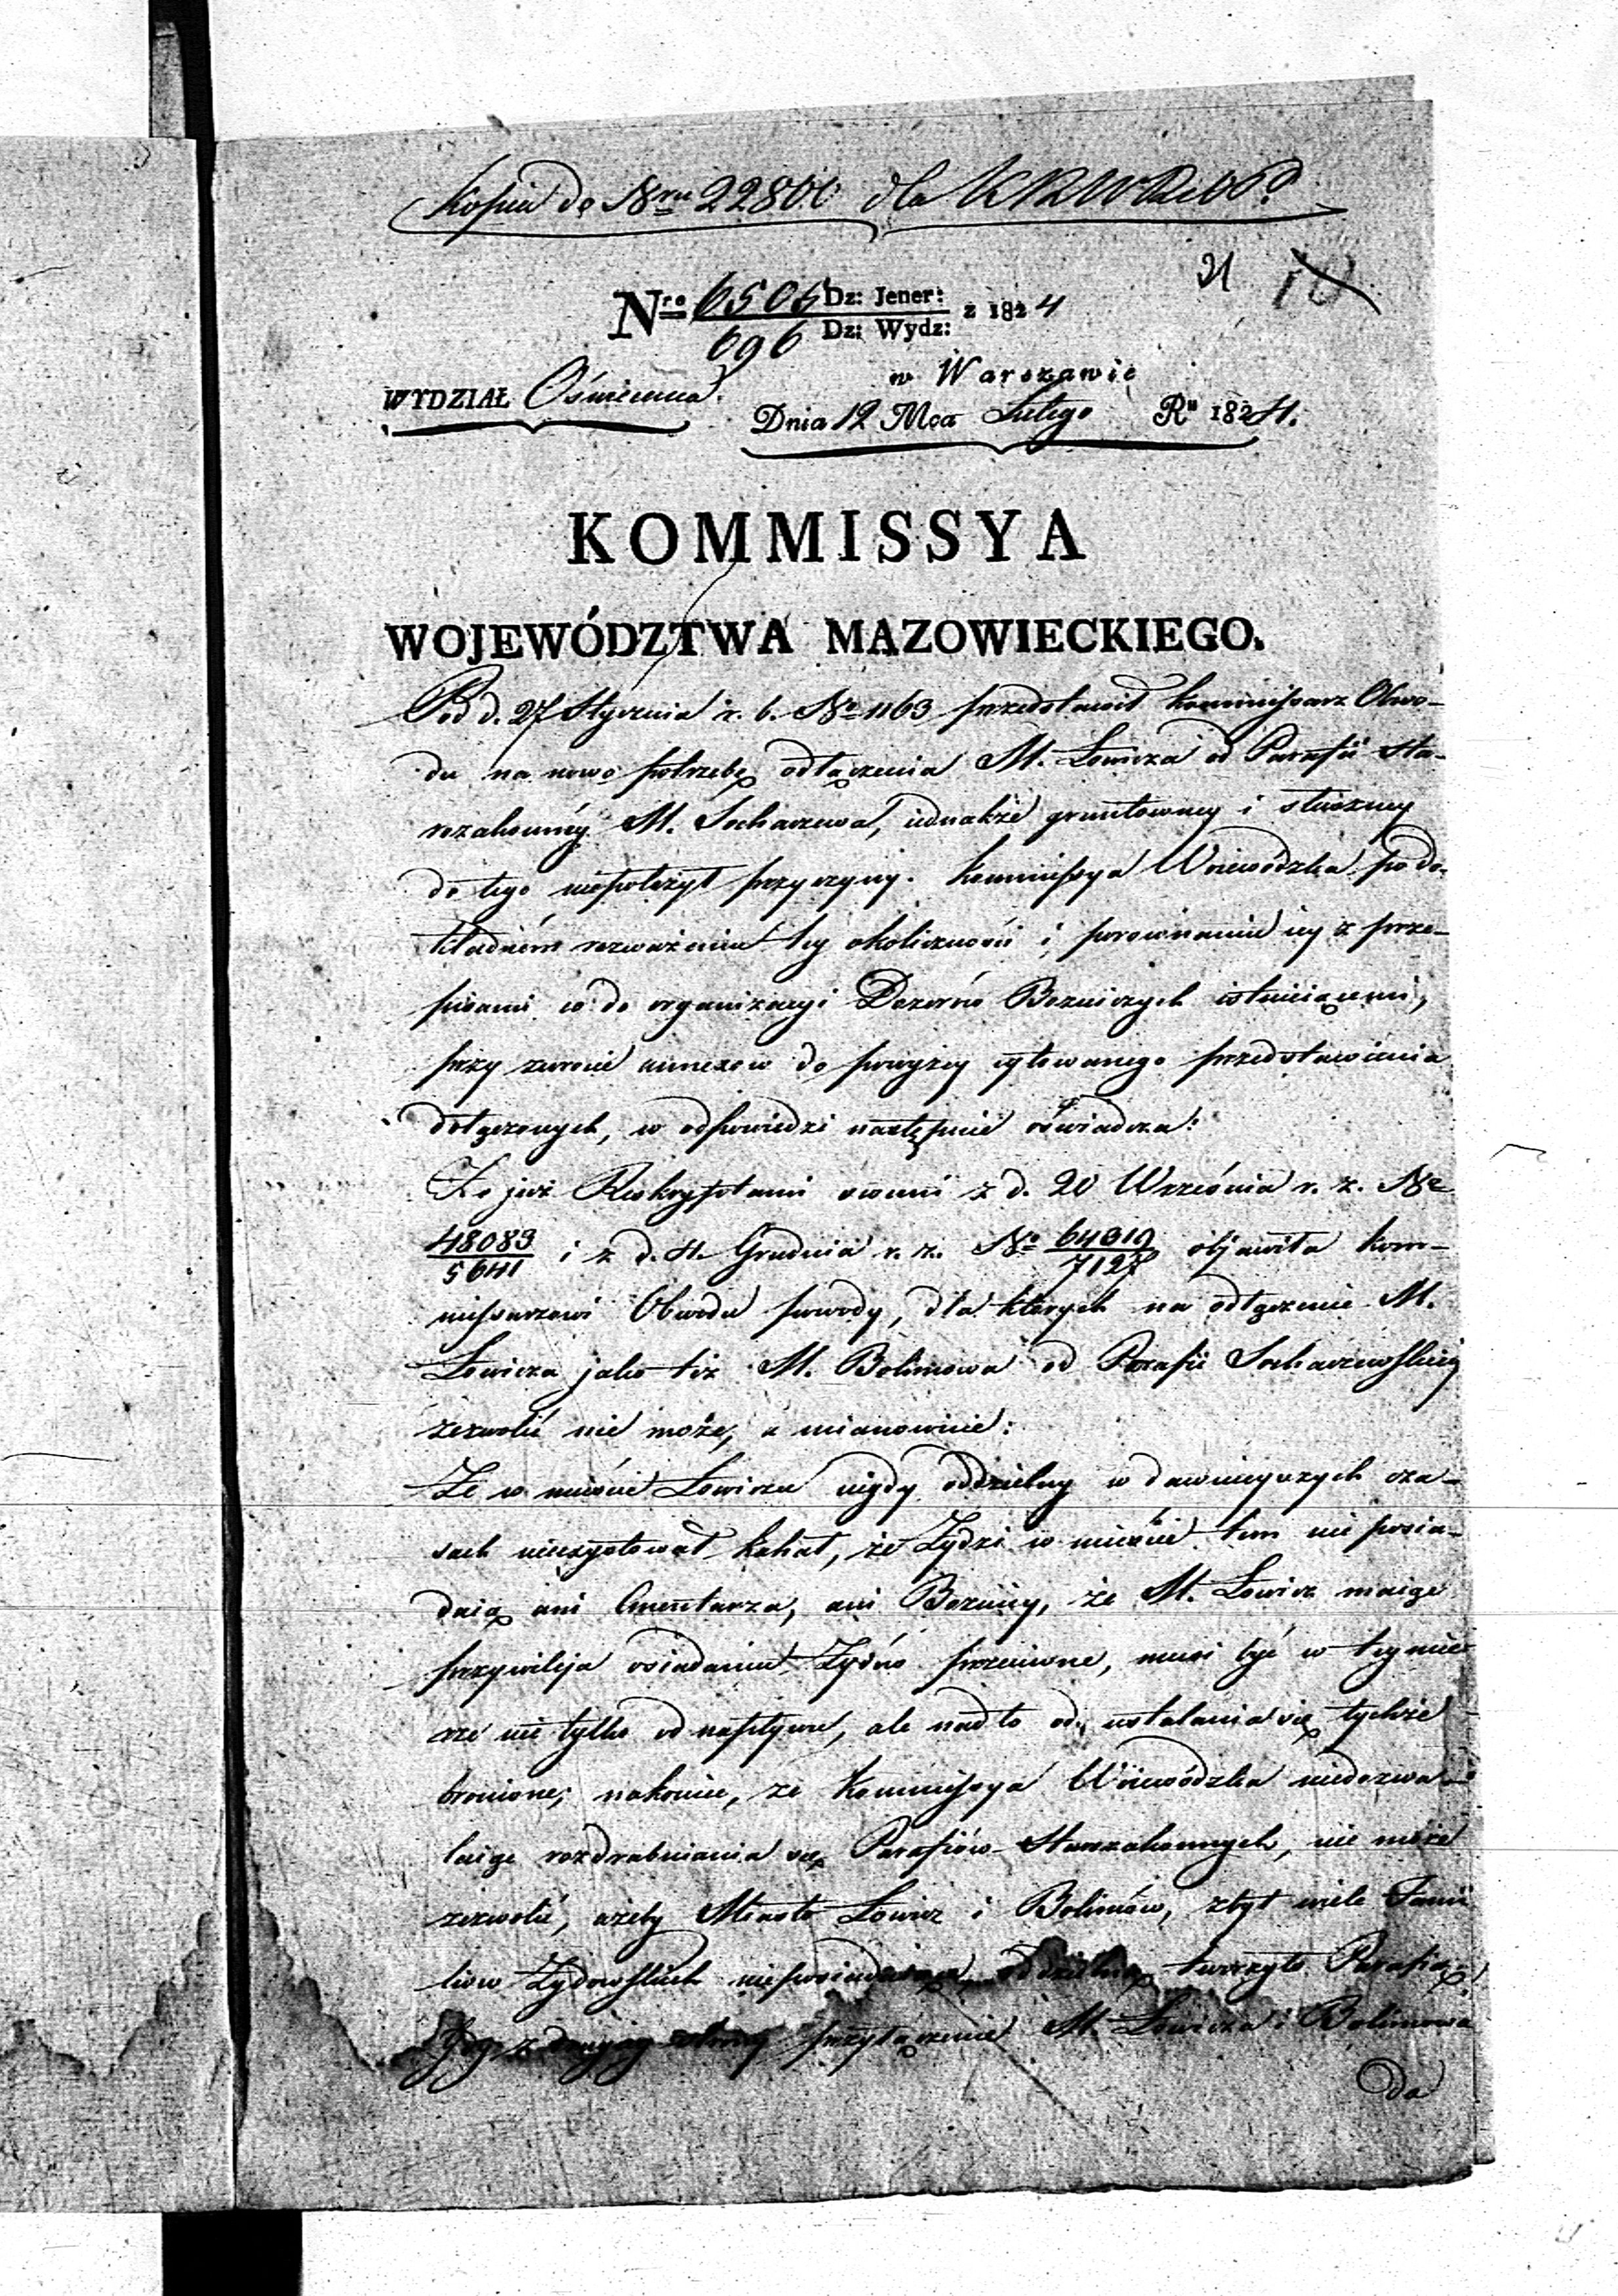 Kopia do Nru 22800 dla KRWR
21 10
Nro 6505 Dz: Jener: z 1824
696 Dz: Wydz:
w Warszawie
WYDZIAŁ Oświecenia.
Dnia 12 Mca Lutego Ru 1824.
KOMMISSYA
WOJEWÓDZTWA MAZOWIECKIEGO.
Pod d. 27 Stycznia r. b. No 1163 przedstawił Kommissarz Obwo-
du na nowo potrzebę odłączenia M. Łowicza od Parafii Sta-
rozakonnéy M. Sochaczewa, iednakże gruntowney i słuszney
do tego niepołożył przyczyny. Kommissya Woiewódzka po do-
kładném rozważeniu tey okoliczności i porównaniu iey z prze-
pisami co do organizacyi Dozorów Bożniczych istnieiącemi,
przy zwrocie annexów do powyżey cytowanego przedstawienia
dołączonych, w odpowiedzi następnie oświadcza:
Że już Reskryptami swemi z d. 20 Września r. z. No
48083/5641 i z d. 4. Grudnia r. z. No 64319/7127 objawiła Kom-
missarzowi Obwodu powody, dla których na odłączenie M.
Łowicza jako też M. Bolimowa od Parafii Sochaczewskiey
zezwolić nie może, a mianowicie:
Że w mieście Łowiczu nigdy oddzielny w dawnieyszych cza-
sach nieexystował Kahał, że Żydzi w mieście tem nie posia-
daią ani Cmentarza, ani Bożnicy, że M. Łowicz maiąc
przywileja osiadaniu Żydów przeciwne, musi być w tey mie-
rze nie tylko od napływu, ale nadto od ustalania się tychże
bronione; nakoniec, że Kommissya Woiewódzka niedozwa-
laiąc rozdrabniania się Parafiów Starozakonnych, nie może
zezwolić, ażeby Miasto Łowicz i Bolimów, zbyt wiele Fami-
liow Żydowskich nieposiadaiące, oddzielną tworzyło Parafią,
Gdy z drugiey strony przyłączenie M. Łowicza i Bolimowa
da